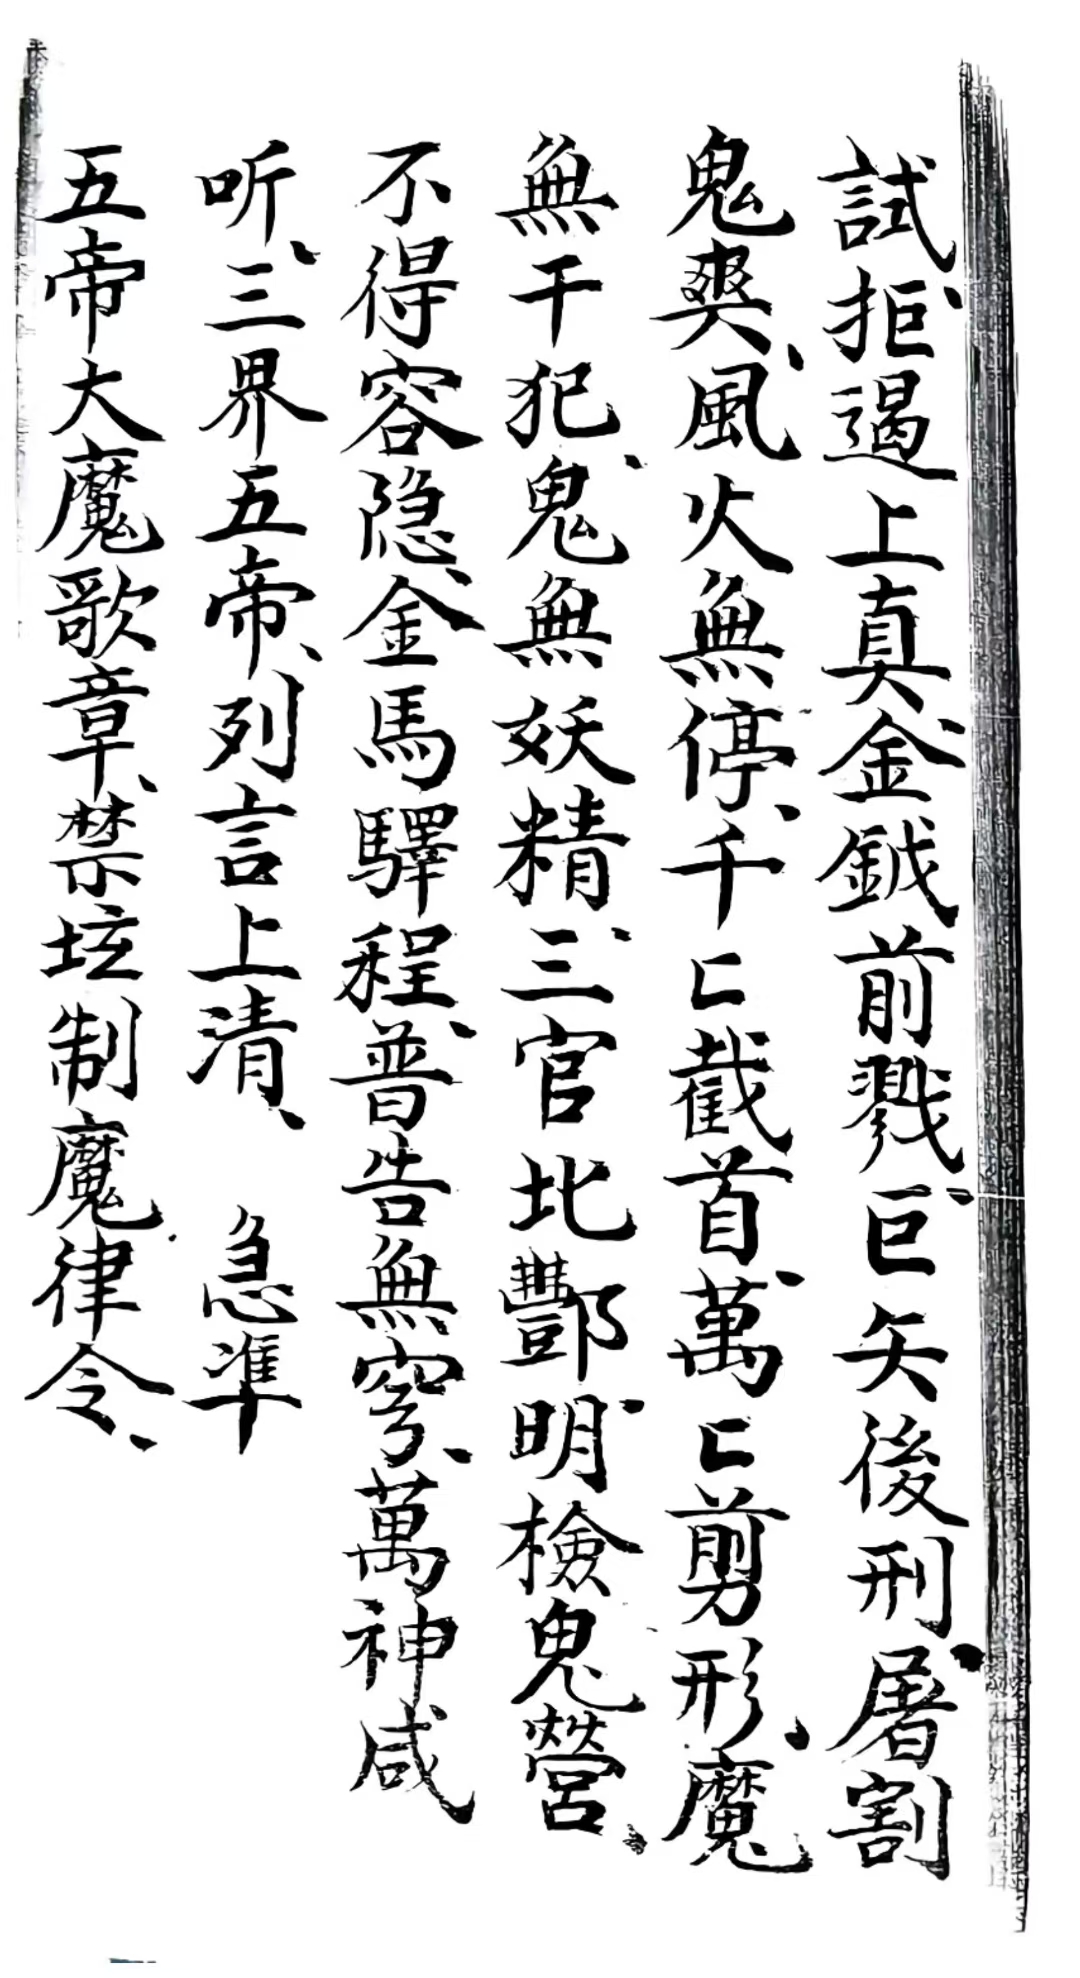 試、拒遏上真、金鉞前戮、巨矢後刑、屠割
鬼爽、風火無停、千匚截首、萬匚剪形、魔
無干犯、鬼無妖精、三官北酆、明檢鬼營、
不得容隐、金馬驛程、普告無窮、萬神咸
听、三界五帝、列言上清、 急準
五帝大魔歌章、禁坛制魔律令、